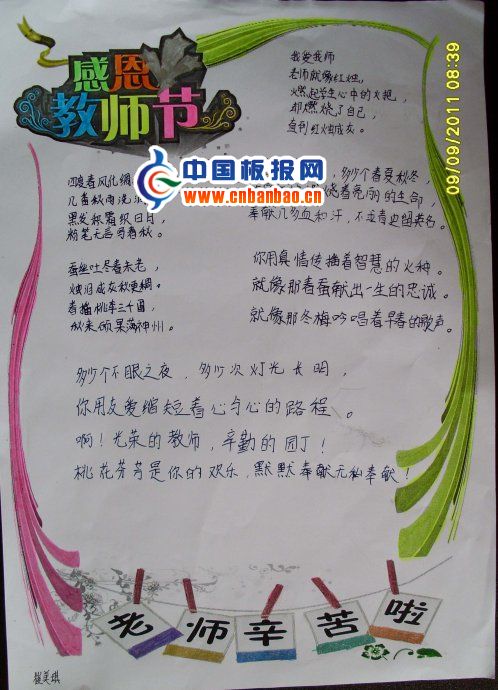 感恩
教师节
我爱我师
老师就像红烛,
燃起学生心中的火把,
却燃烧了自己,
直到红烛成灰。
09/09/2011 08:39
中国板报网
www.cnbanbao.cn
四度春风化绸
几番秋雨洗
黑发积霜织日月
粉笔无言写春秋。
蚕坐吐尽春未老,
烛泪成灰秋更稠。
春播桃李三千圃,
秋来硕果满神州。
多少个春夏秋冬,
烧着亮丽的生命,
奉献几多血和汗,不
你用真情传播着智慧的火种。
就像那春蚕献出一生的忠诚。
就像那冬梅吟唱着早春的歌声。
多少个不眠之夜,多少次灯光长明,
你用友爱缩短着心与心的路程。
啊!光荣的教师,辛勤的园丁!
桃花芬芳是你的欢乐,默默奉献无私奉献!
老师辛苦啦
崔美琪